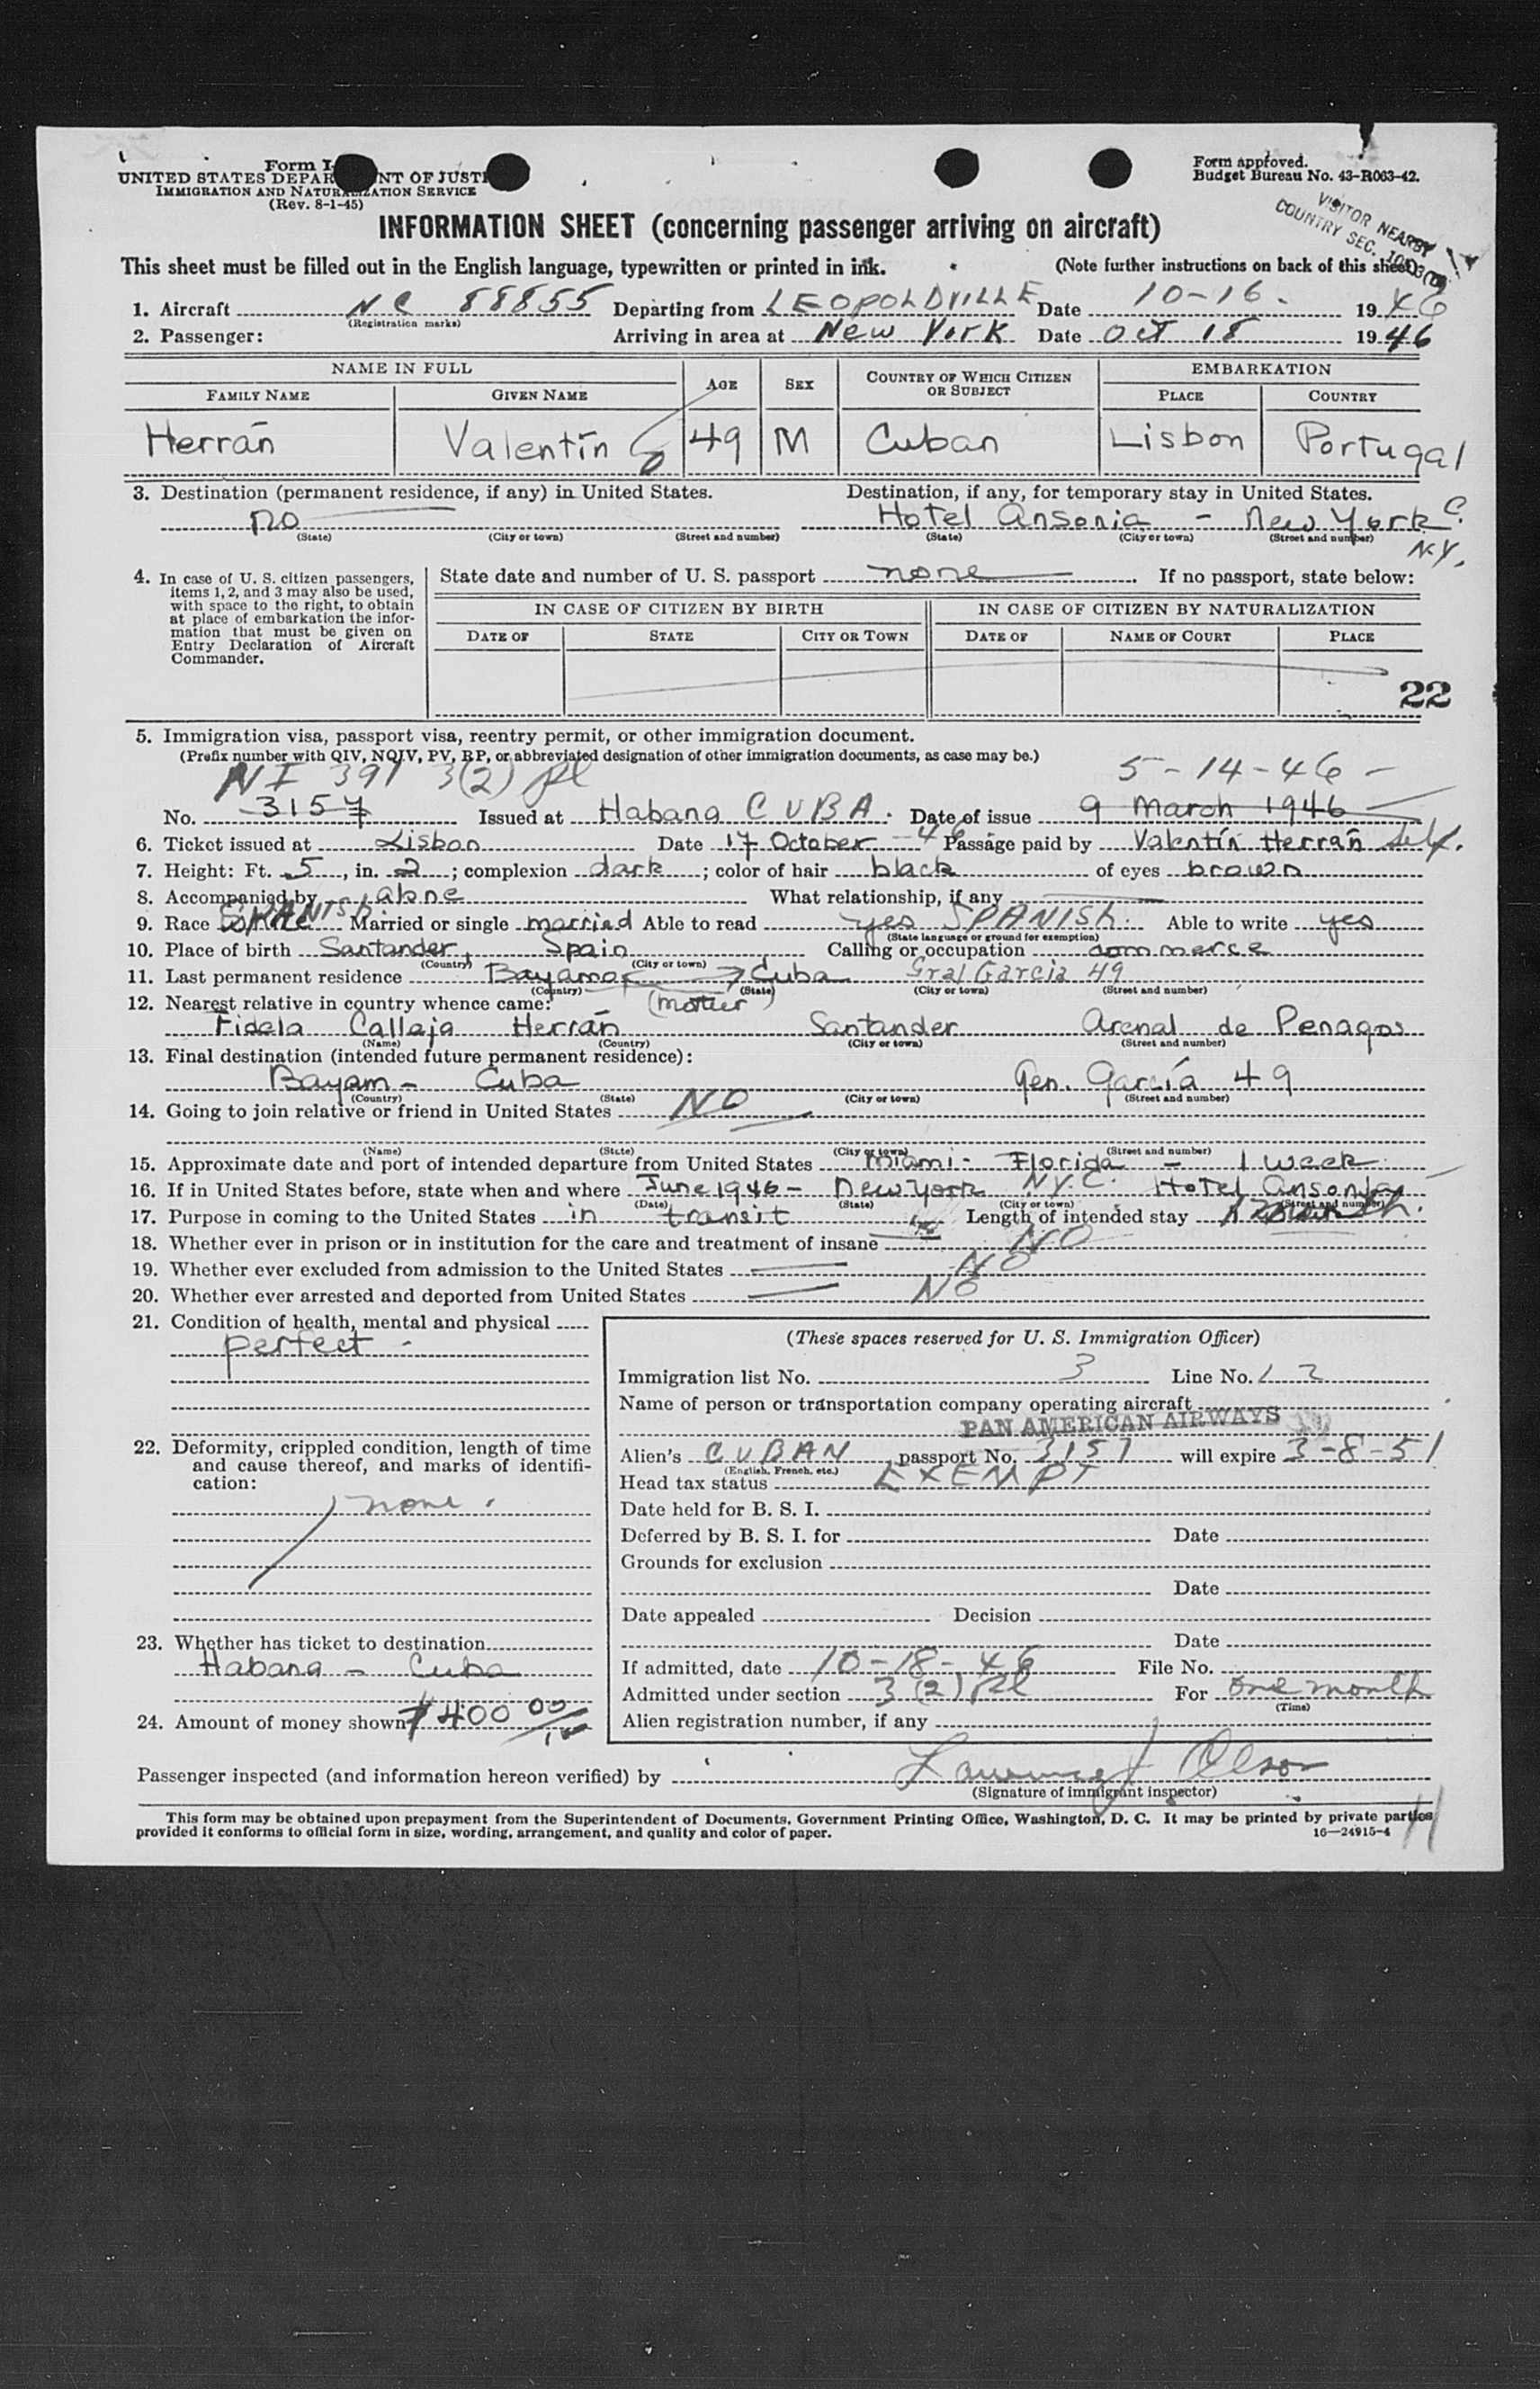 Form I-
UNITED STATES DEPAR NT OF JUSTI
IMMIGRATION AND NATURALIZATION SERVICE
(Rev. 8-1-45)
Form approved.
Budget Bureau No. 43-R063-42.
VISITOR NEARBY
COUNTRY SEC.
INFORMATION SHEET (concerning passenger arriving on aircraft)
This sheet must be filled out in the English language, typewritten or printed in ink. (Note further instructions on back of this sheet)
1. Aircraft NC 88855 Departing from LEOPOLDVILLE Date 10-16. 1946
(Registration marks)
2. Passenger: Arriving in area at New York Date Oct 18 1946
NAME IN FULL AGE SEX COUNTRY OF WHICH CITIZEN OR SUBJECT EMBARKATION
FAMILY NAME GIVEN NAME PLACE COUNTRY
Herrán Valentín 49 M Cuban Lisbon Portugal
3. Destination (permanent residence, if any) in United States. Destination, if any, for temporary stay in United States.
no Hotel Ansonia - New York C.
(State) (City or town) (Street and number) (State) (City or town) (Street and number)
N.Y.
4. In case of U. S. citizen passengers, items 1, 2, and 3 may also be used, with space to the right, to obtain at place of embarkation the information that must be given on Entry Declaration of Aircraft Commander.
State date and number of U. S. passport none If no passport, state below:
IN CASE OF CITIZEN BY BIRTH IN CASE OF CITIZEN BY NATURALIZATION
DATE OF STATE CITY OR TOWN DATE OF NAME OF COURT PLACE
22
5. Immigration visa, passport visa, reentry permit, or other immigration document.
(Prefix number with QIV, NQIV, PV, RP, or abbreviated designation of other immigration documents, as case may be.)
NI 391 3(2) 5-14-46 -
No. 3157 Issued at Habana CUBA. Date of issue 9 March 1946
6. Ticket issued at Lisbon Date 17 October -46 Passage paid by Valentín Herrán self.
7. Height: Ft. 5, in. 2; complexion dark; color of hair black of eyes brown
8. Accompanied by alone What relationship, if any
9. Race SPANISH Married or single married Able to read yes SPANISH. Able to write yes
(State language or ground for exemption)
10. Place of birth Santander, Spain Calling or occupation commerce
(Country) (City or town)
11. Last permanent residence Bayamo Cuba Gral Garcia 49
(Country) (State) (City or town) (Street and number)
12. Nearest relative in country whence came: (mother)
Fidela Calleja Herrán Santander Arenal de Penagos
(Name) (Country) (City or town) (Street and number)
13. Final destination (intended future permanent residence):
Bayam - Cuba Gen. García 49
(Country) (State) (City or town) (Street and number)
14. Going to join relative or friend in United States NO
(Name) (State) (City or town) (Street and number)
15. Approximate date and port of intended departure from United States Miami - Florida - 1 week
16. If in United States before, state when and where June 1946 - New York N.Y.C. Hotel Ansonia
(Date) (State) (City or town) (Street and number)
17. Purpose in coming to the United States in transit Length of intended stay
18. Whether ever in prison or in institution for the care and treatment of insane NO
19. Whether ever excluded from admission to the United States NO
20. Whether ever arrested and deported from United States NO
21. Condition of health, mental and physical
perfect -
22. Deformity, crippled condition, length of time and cause thereof, and marks of identification:
none.
23. Whether has ticket to destination
Habana - Cuba
24. Amount of money shown $400 00
(These spaces reserved for U. S. Immigration Officer)
Immigration list No. 3 Line No. 2
Name of person or transportation company operating aircraft
PAN AMERICAN AIRWAYS
Alien's CUBAN passport No. 3157 will expire 3-8-51
(English, French, etc.)
Head tax status EXEMPT
Date held for B. S. I.
Deferred by B. S. I. for Date
Grounds for exclusion
Date
Date appealed Decision
Date
If admitted, date 10-18-46 File No.
Admitted under section 3(2) For one month
(Time)
Alien registration number, if any
Passenger inspected (and information hereon verified) by Lawrence J Olson
(Signature of immigrant inspector)
This form may be obtained upon prepayment from the Superintendent of Documents, Government Printing Office, Washington, D. C. It may be printed by private parties
provided it conforms to official form in size, wording, arrangement, and quality and color of paper. 16—24915-4